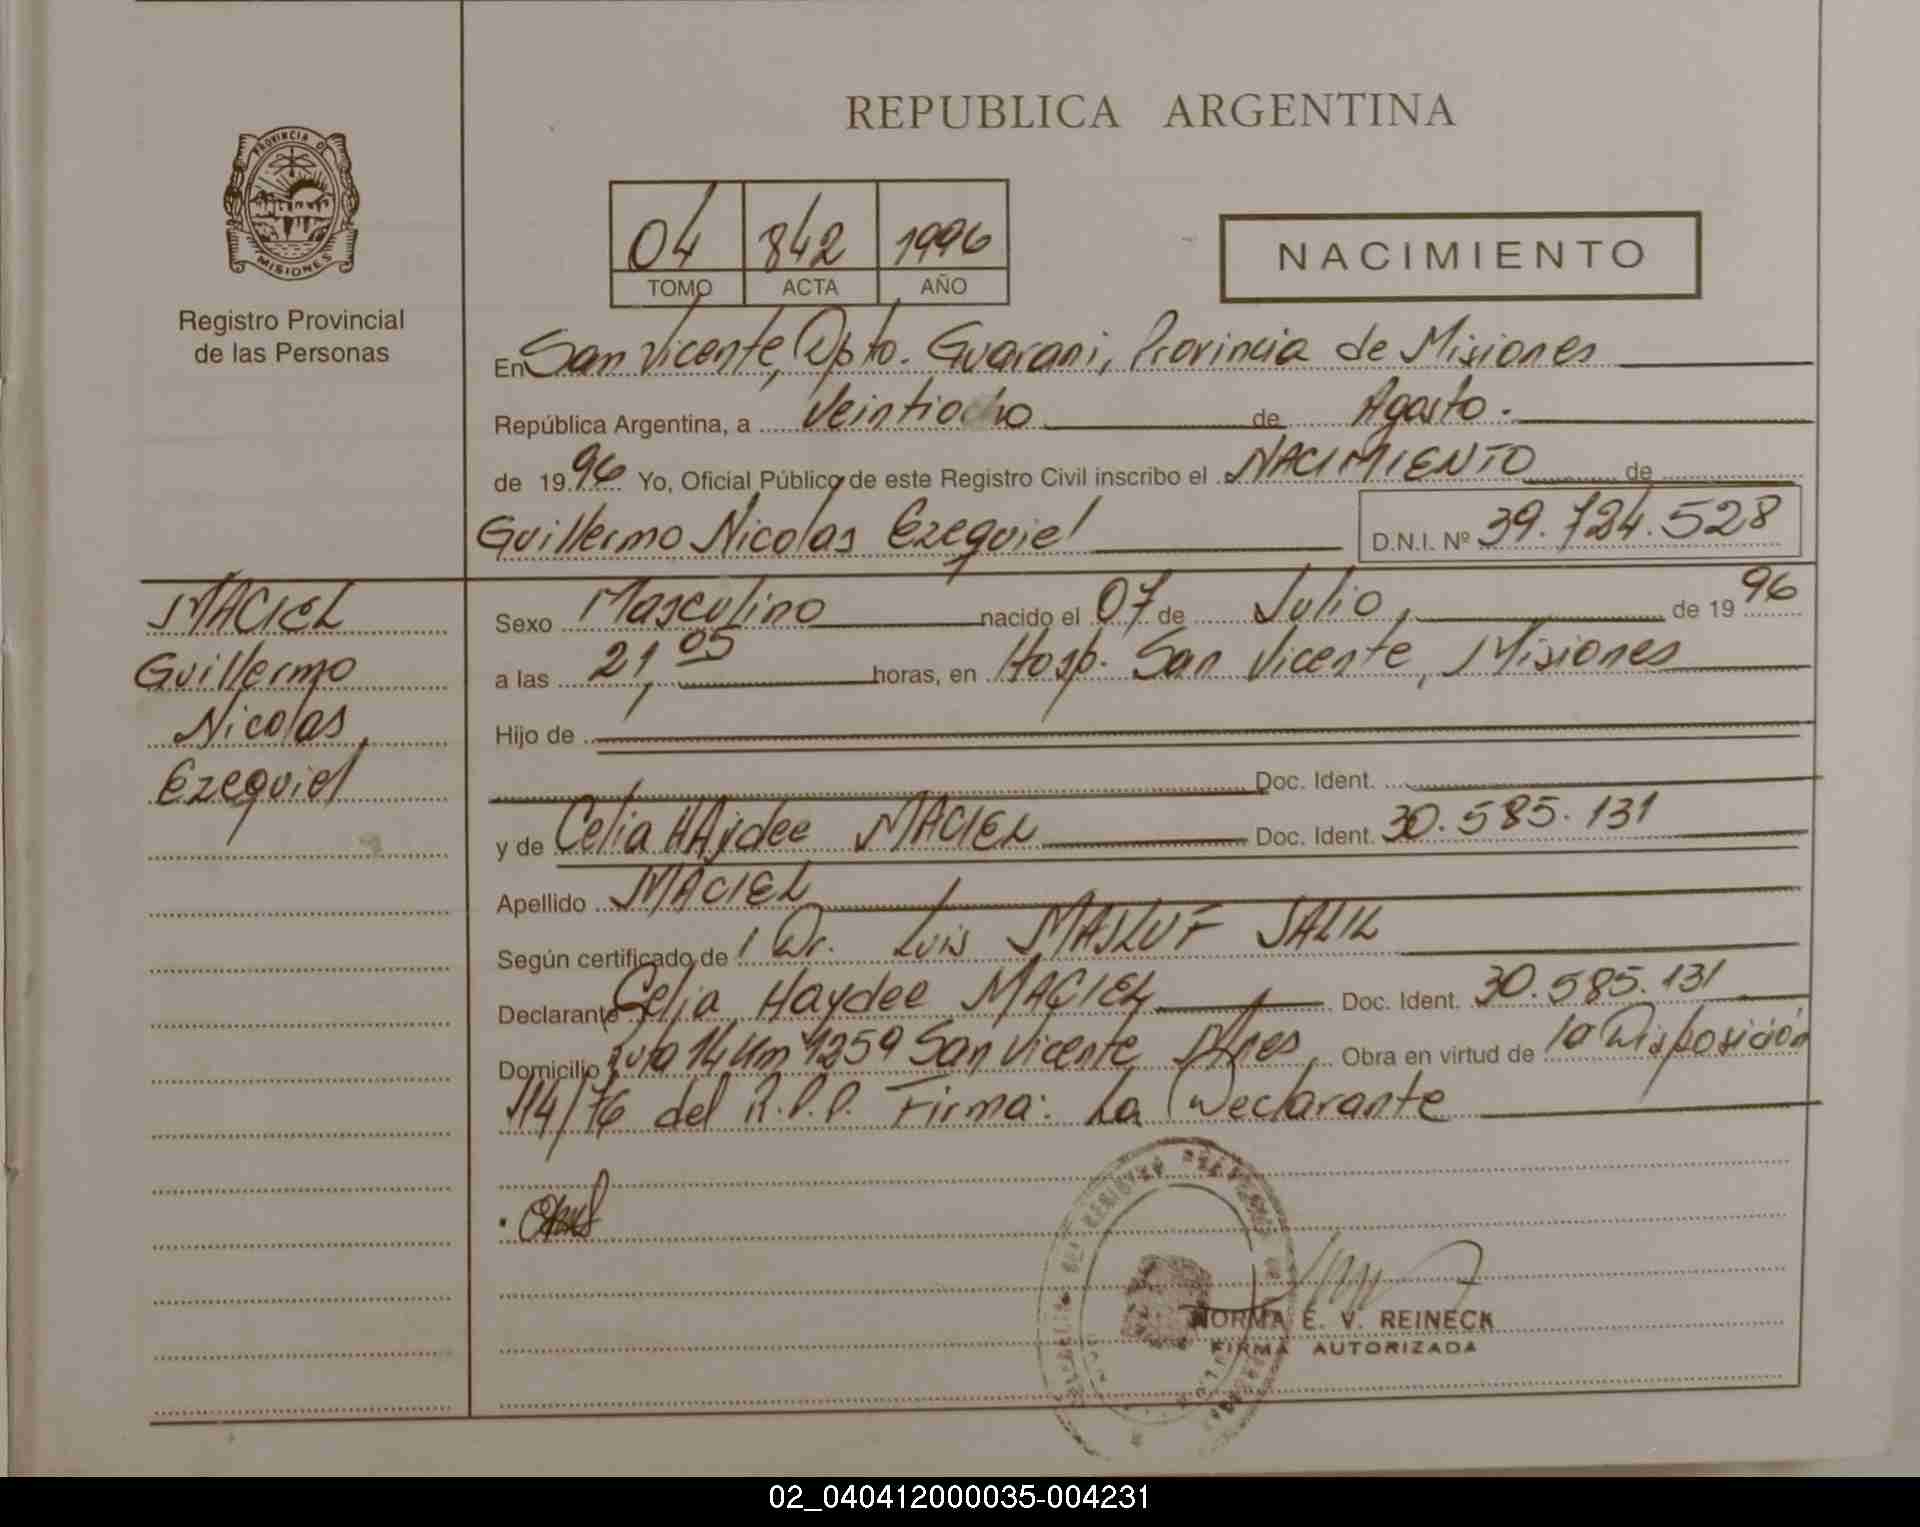 REPUBLICA ARGENTINA
PROVINCIA DE
MISIONES
Registro Provincial
de las Personas
04 842 1996
TOMO ACTA AÑO
NACIMIENTO
En San Vicente, Dpto. Guarani, Provincia de Misiones
República Argentina, a Veintiocho de Agosto.
de 1996 Yo, Oficial Público de este Registro Civil inscribo el NACIMIENTO de
Guillermo Nicolas Ezequiel D.N.I. Nº 39.724.528
MACIEL
Guillermo
Nicolas
Ezequiel
Sexo Masculino nacido el 07 de Julio, de 1996
a las 21,05 horas, en Hosp. San Vicente, Misiones
Hijo de
Doc. Ident.
y de Celia HAydee MACIEL Doc. Ident. 30.585.131
Apellido MACIEL
Según certificado de Dr. Luis MASLUF JALIL
Declarante Celia Haydee MACIEL Doc. Ident. 30.585.131
Domicilio ruta 14 Km 1259 San Vicente Mnes, Obra en virtud de la Disposición
114/76 del R.P.P. Firma: La Declarante
NORMA E. V. REINECK
FIRMA AUTORIZADA
02_040412000035-004231